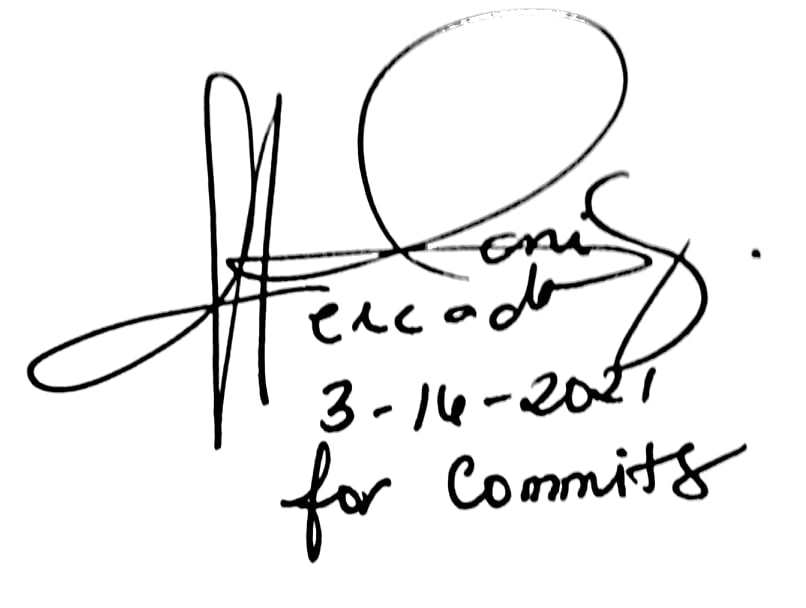 Mercado
3-16-2021
for Commits